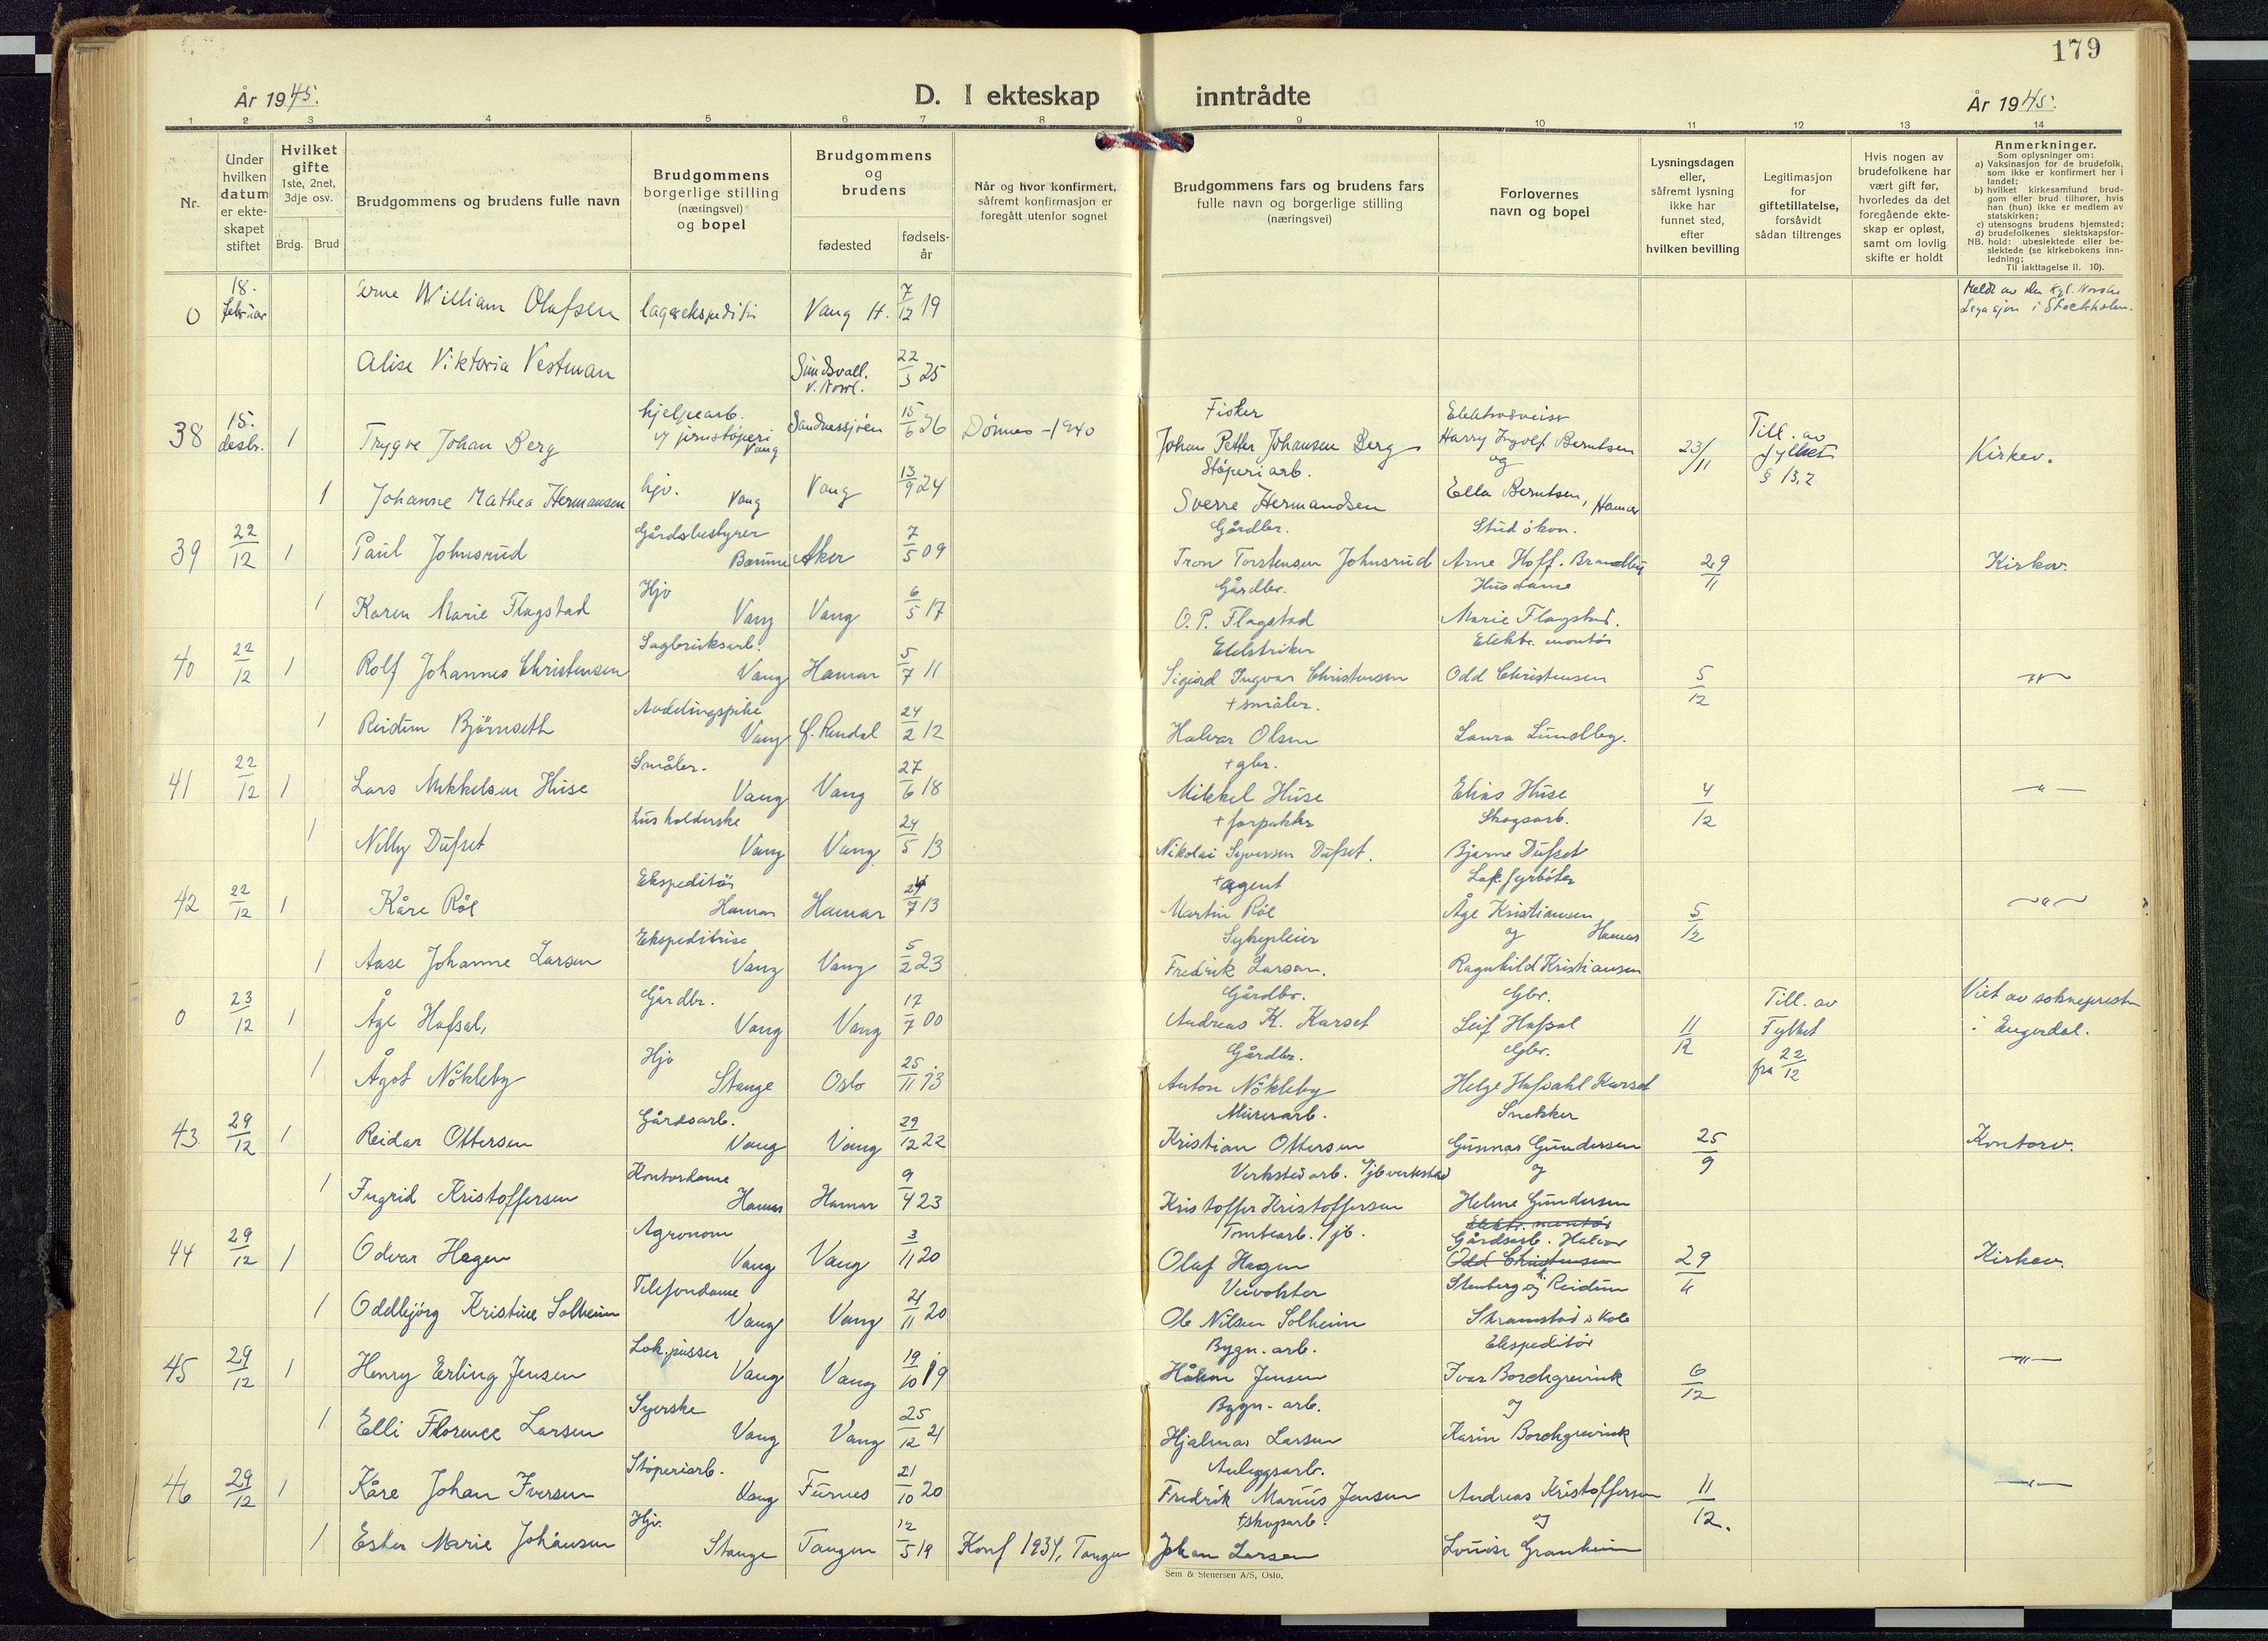 179
År 1945.
D. I ekteskap inntrådte
År 1945.
1 2 3 4 5 6 7 8 9 10 11 12 13 14
Nr.
Under hvilken datum er ekteskapet stiftet
Hvilket gifte 1ste, 2net, 3dje osv.
Brdg. Brud
Brudgommens og brudens fulle navn
Brudgommens borgerlige stilling (næringsvei) og bopel
Brudgommens og brudens
fødested
fødsels-år
Når og hvor konfirmert, såfremt konfirmasjon er foregått utenfor sognet
Brudgommens fars og brudens fars fulle navn og borgerlige stilling (næringsvei)
Forlovernes navn og bopel
Lysningsdagen eller, såfremt lysning ikke har funnet sted, efter hvilken bevilling
Legitimasjon for giftetillatelse, forsåvidt sådan tiltrenges
Hvis nogen av brudefolkene har vært gift før, hvorledes da det foregående ekteskap er opløst, samt om lovlig skifte er holdt
Anmerkninger.
Som oplysninger om:
a) Vaksinasjon for de brudefolk, som ikke er konfirmert her i landet;
b) hvilket kirkesamfund brudgom eller brud tilhører, hvis han (hun) ikke er medlem av statskirken;
c) utensogns brudens hjemsted;
d) brudefolkenes slektskapsforhold: ubeslektede eller beslektede (se kirkebokens innledning;
NB. Til iakttagelse II. 10).
0 18. februar Arne William Olafsen lagerekspeditør Vang H. 7/12 19 Meldt av den Kgl. Norske Legasjon i Stockholm.
Alise Viktoria Vestman Sundsvall. V. Norrl. 22/3 25
38 15. desbr. 1 Trygve Johan Berg hjelpearb. v/ jernstöperi Vang Sandnessjöen 15/6 26 Dönnes - 1940 Fisker Johan Petter Johansen Berg Elektrosveiser Harry Ingolf Berntsen og 23/11 Till. av fylket § 13,2 Kirkev.
1 Johanne Mathea Hermansen hjv. Vang Vang 13/9 24 Stöperiarb. Sverre Hermandsen Ella Berntsen, Hamar
39 22/12 1 Paul Johnsrud Gårdsbestyrer Bærum Aker 7/5 09 Gårdbr. Tron Torstensen Johnsrud Stud ökon. Arne Hoff. Brandbu 29/11 Kirkev.
1 Karen Marie Flagstad Hjv Vang Vang 6/5 17 Gårdbr. O. P. Flagstad Husdame Marie Flagstad.
40 22/12 1 Rolf Johannes Christensen Sagbruksarb. Vang Hamar 5/7 11 Sigurd Ingvar Christensen Elektr. montör Odd Christensen 5/12 —"—
1 Reidun Björnseth Avdelingspike Vang Ö. Rendal 24/2 12 + småbr. Halvar Olsen Laura Lundby.
41 22/12 1 Lars Mikkelsen Huse Småbr. Vang Vang 27/6 18 + gbr. Mikkel Huse Elias Huse 4/12 —"—
1 Nelly Dufset Husholderske Vang Vang 24/5 13 + forpakter Nikolai Syversen Dufset. Skogsarb. Bjarne Dufset
42 22/12 1 Kåre Röe Ekspeditör Hamar Hamar 24/7 13 + agent Martin Röe Lok. fyrböter Åge Kristiansen og Hamar 5/12 —"—
1 Aase Johanne Larsen Ekspeditrise Vang Vang 5/2 23 Sykepleier Fredrik Larsen. Ragnhild Kristiansen
0 23/12 1 Åge Hafsal, Gårdbr. Vang Vang 17/7 00 Gårdbr. Andreas K. Karset Gbr. Leif Hafsal 11/12 Till. av Fylket fra 22/12 Viet av sokneprest i Engerdal.
1 Ågot Nökleby Hjv Stange Oslo 25/11 13 Gårdbr. Anton Nökleby Gbr. Helge Hafsahl Karset
43 29/12 1 Reidar Ottersen Gårdsarb. Vang Vang 29/12 22 Murerarb. Kristian Ottersen Snekker Gunnar Gundersen og 25/9 Kontorv.
1 Ingrid Kristoffersen Kontordame Hamar Hamar 9/4 23 Verkstedarb. v/jb verkstad Kristoffer Kristoffersen Helene Gundersen
44 29/12 1 Odvar Hagen Agronom Vang Vang 3/11 20 Tomtearb. v/jb. Olaf Hagen Elektr. montör Gårdsarb. Halvor Odd Christensen 29/11 Kirkev.
1 Oddbjörg Kristine Solheim Telefondame Vang Vang 21/11 20 Veivokter Ole Nilsen Solheim Stenberg og Reidun Stramstad
45 29/12 1 Henry Erling Jensen Lok.pusser Vang Vang 19/10 19 Bygn.arb. Håkon Jensen Ekspeditör Ivar Borchgrevink og 6/12 —"—
1 Elli Florence Larsen Syerske Vang Vang 25/12 21 Bygn-arb. Hjalmar Larsen Karin Borchgrevink
46 29/12 1 Kåre Johan Iversen Stöperiarb. Vang Furnes 21/10 20 Anleggsarb. Fredrik Marius Jensen Andreas Kristoffersen og 11/12. —"—
1 Ester Marie Johansen Hjv. Stange Tangen 12/5 19 Konf 1934, Tangen + skogsarb. Johan Larsen Louise Granheim
Sem & Stenersen A/S, Oslo.